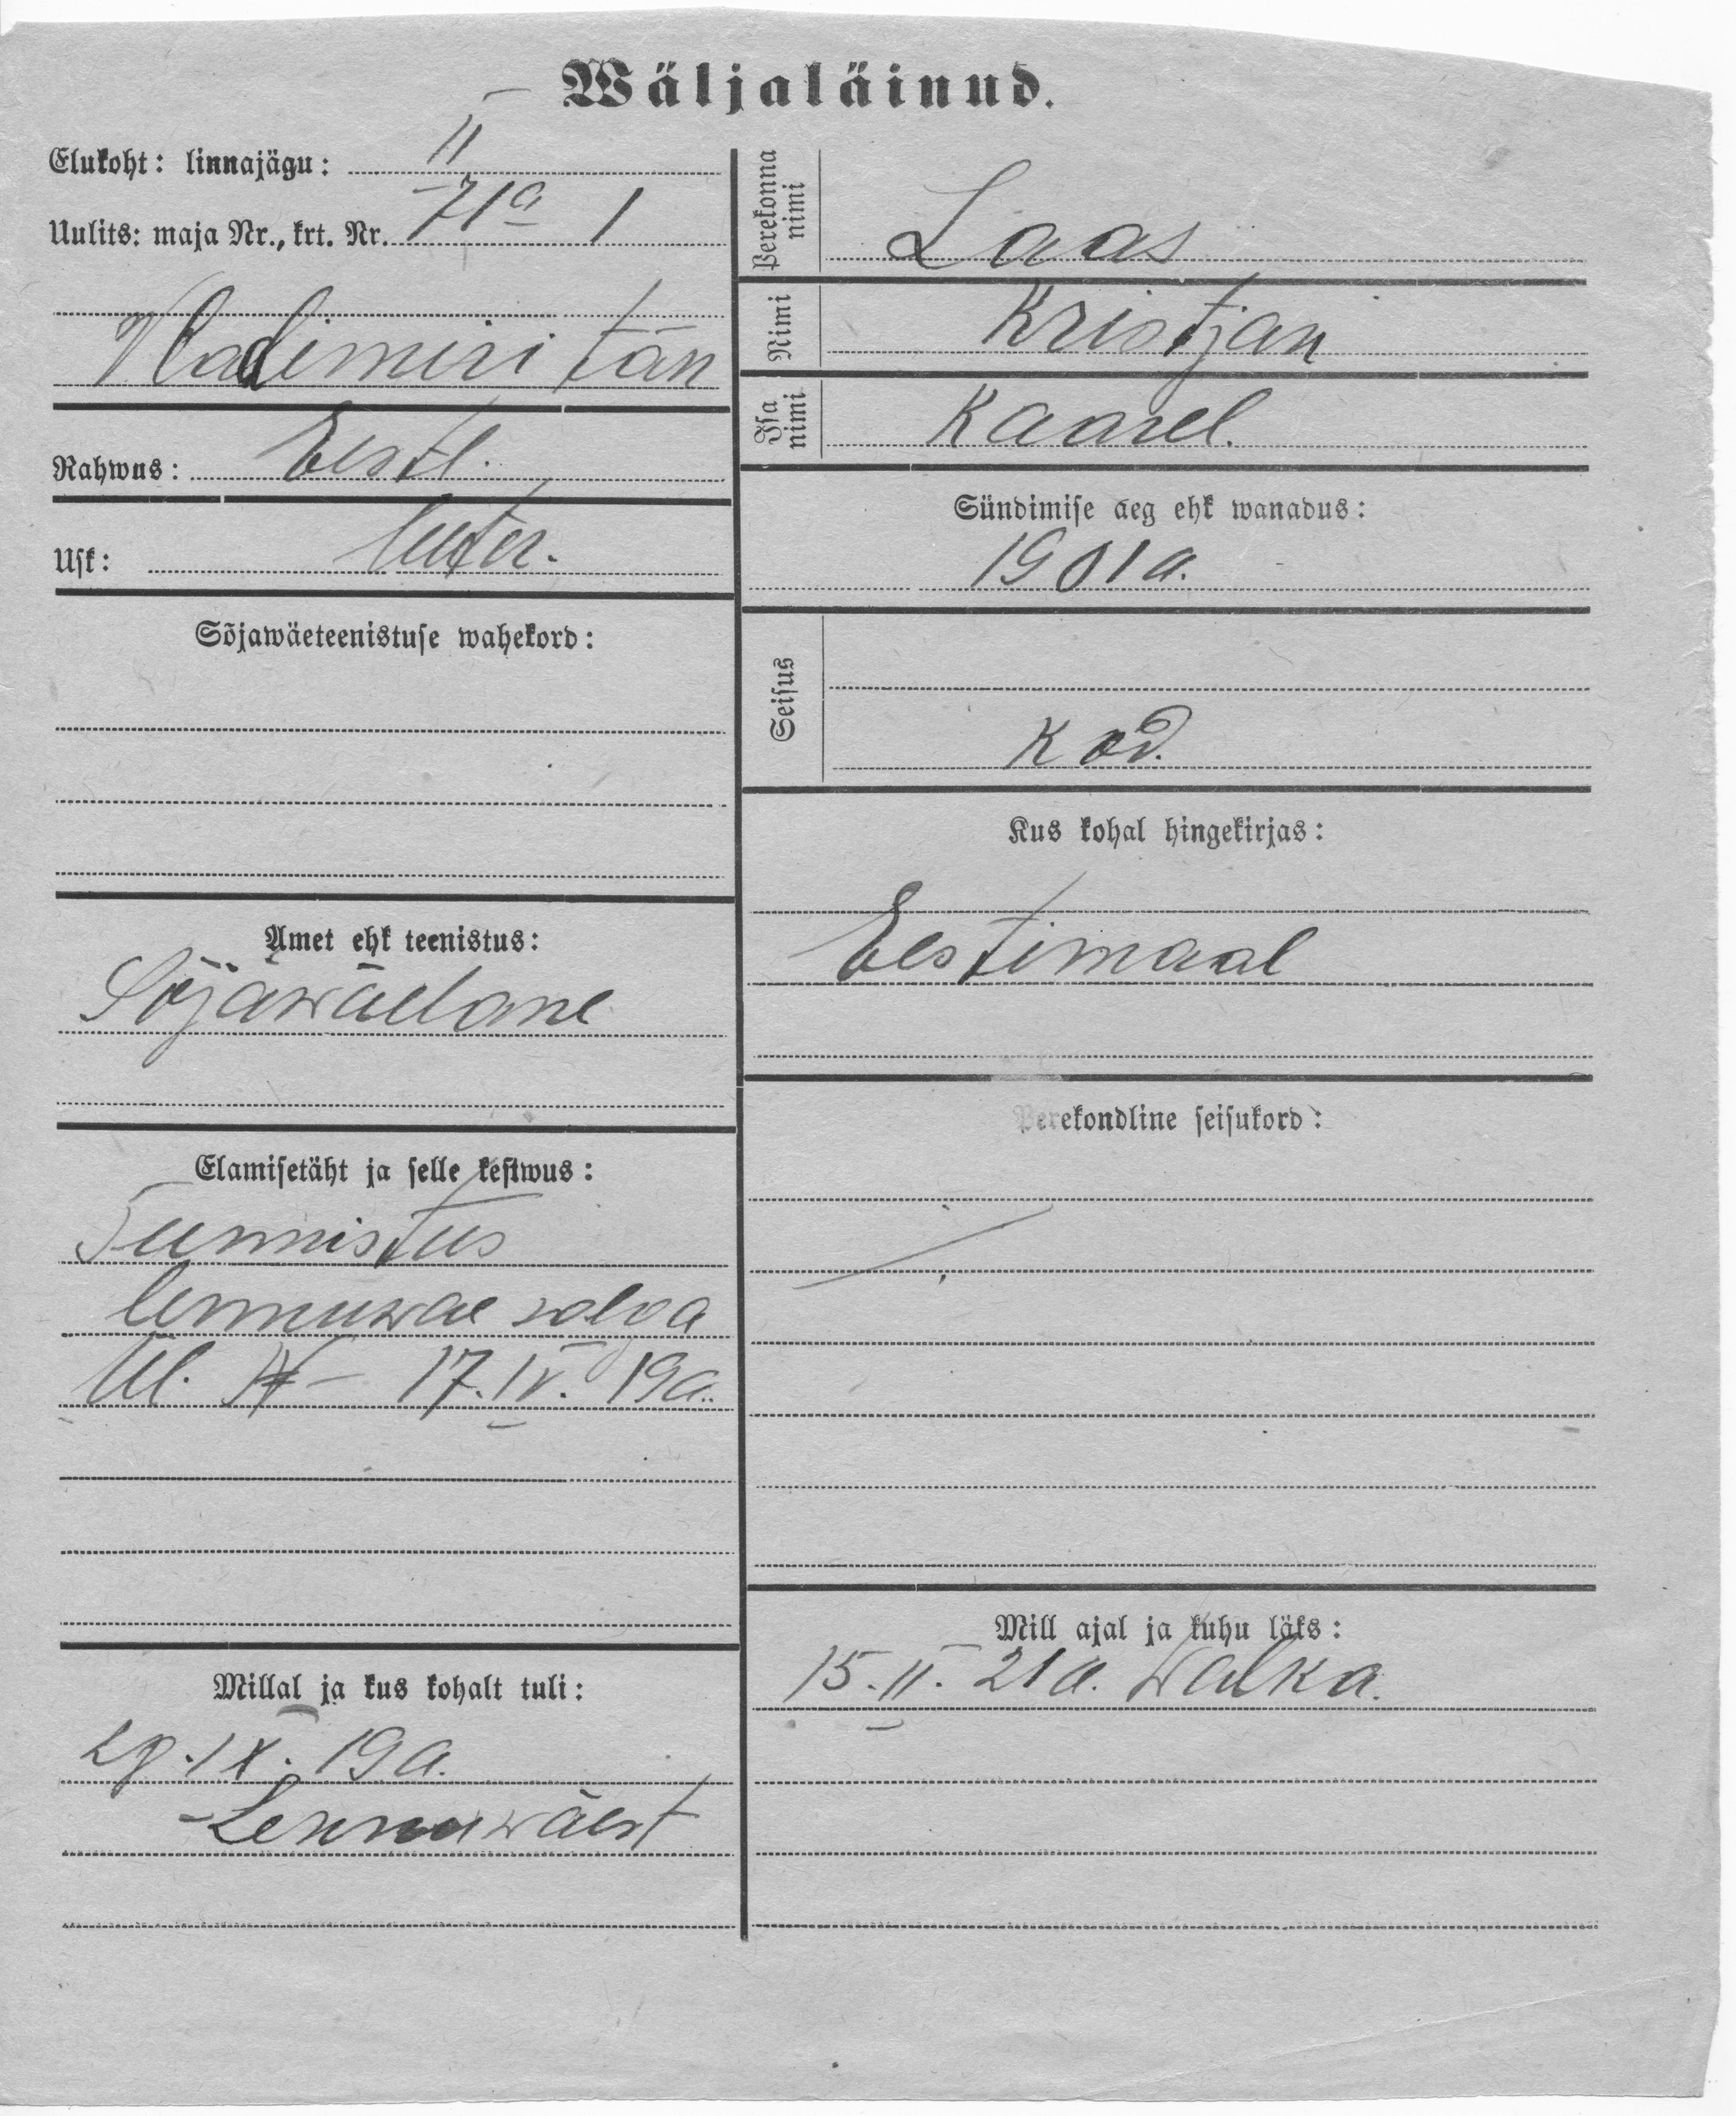 Wäljaläinud.
Elukoht: linnajägu: II
Uulits: maja Nr., krt. Nr. 71a 1
Wladimiri tän
Rahwus: Eestl.
Usk: luter.
Sõjawäeteenistuse wahekord:
Amet ehk teenistus:
Sõjawäelane
Elamisetäht ja selle kestwus:
Tunnistus
lennuwae
Ül. № – 17.IV. 19a.
Millal ja kus kohalt tuli:
IX. 19a.
Lennuwäest
Perekonna nimi Laas
Nimi Kristjan
Isa nimi Kaarel.
Sündimise aeg ehk wanadus:
1901a.
Seisus
Kod.
Kus kohal hingekirjas:
Eestimaal
Perekondline seisukord:
Mill ajal ja kuhu läks:
15.II. 21a. Walka.